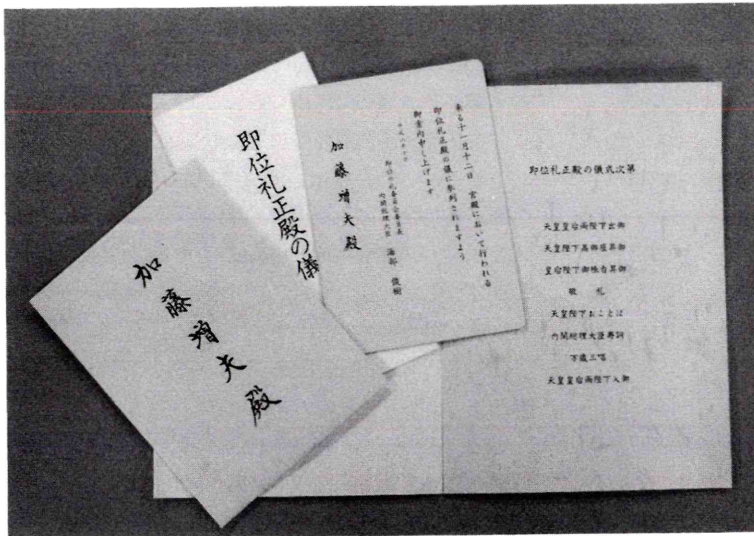 加藤増夫殿
即位礼正殿の儀
来る十一月十二日 宮殿において行われる
即位礼正殿の儀に参列されますよう
御案内申し上げます
即位の礼委員会委員長
内閣総理大臣 海部俊樹
加藤増夫殿
即位礼正殿の儀式次第
天皇皇后両陛下出御
天皇陛下高御座昇御
皇后陛下御帳台昇御
敬礼
天皇陛下おことば
内閣総理大臣寿詞
万歳三唱
天皇皇后両陛下入御